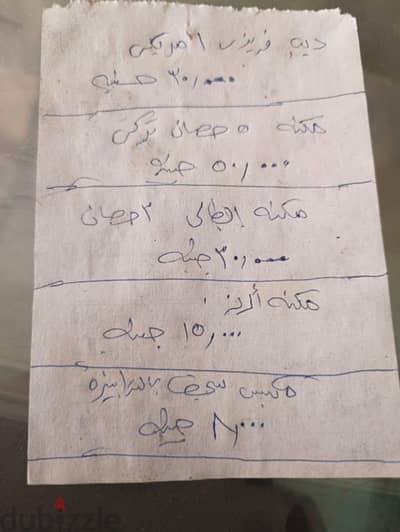 ديب فريزر امريكى
٣٠,٠٠٠ جنيه
مكنه ٥ حصان تركى
٥٠,٠٠٠ جنيه
مكنه ايطالى ٣ حصان
٣٠,٠٠٠ جنيه
مكنه أرز
١٥,٠٠٠ جنيه
مكبس سجق بالترابيزه
٨٠٠٠ جنيه
dubizzle